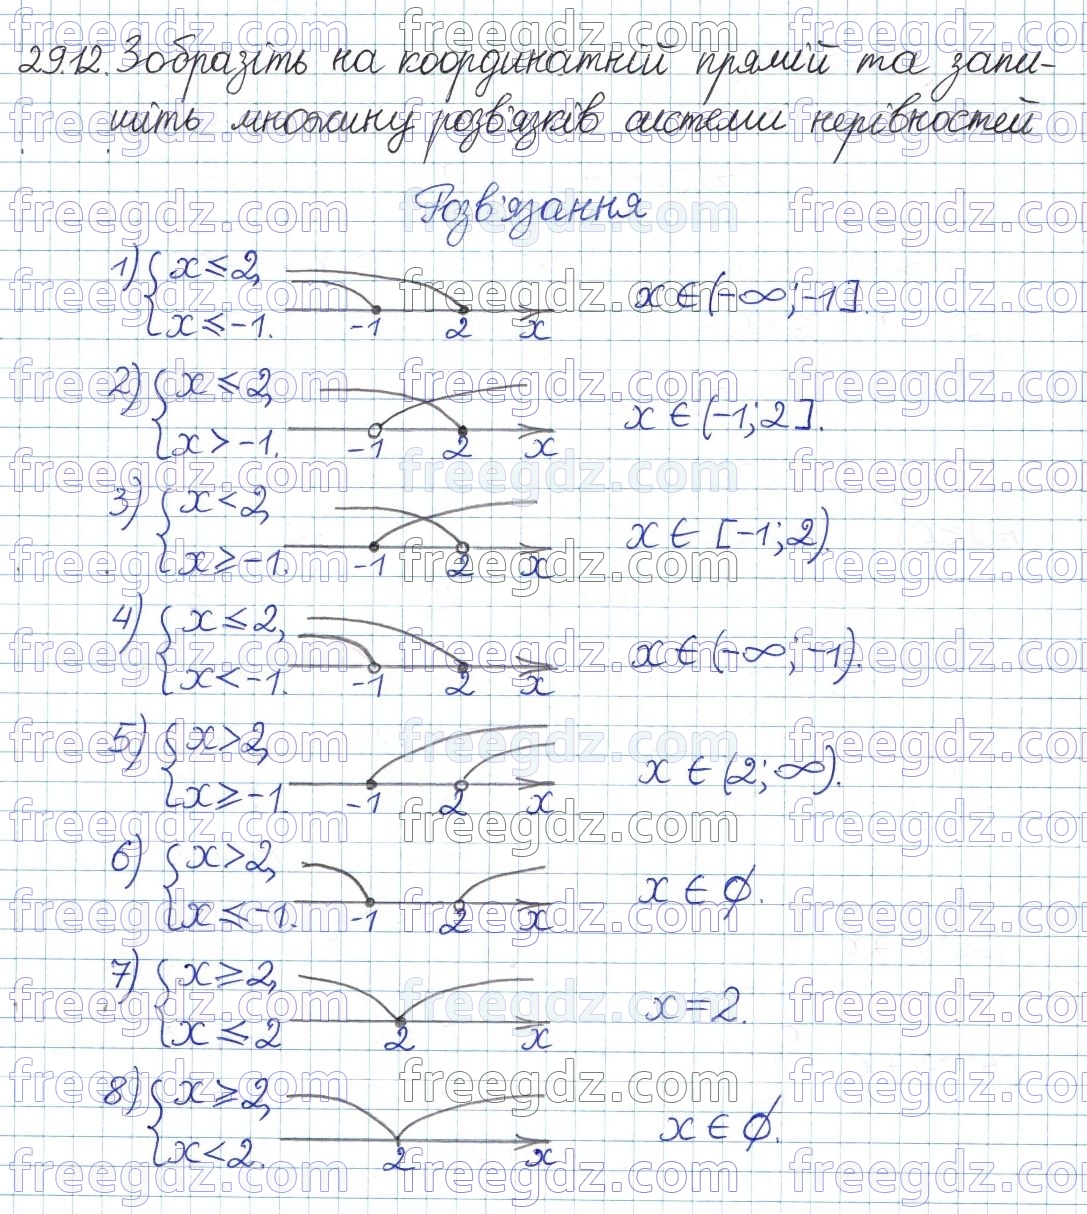 29.12. Зобразіть на координатній прямій та запи-
шіть множину розв'язків системи нерівностей
Розв'язання
1) { x ≤ 2,
x ≤ -1.
-1 2 x
x ∈ (-∞; -1].
2) { x ≤ 2,
x > -1.
-1 2 x
x ∈ (-1; 2].
3) { x < 2,
x ≥ -1.
-1 2 x
x ∈ [-1; 2).
4) { x ≤ 2,
x < -1.
-1 2 x
x ∈ (-∞; -1).
5) { x > 2,
x ≥ -1.
-1 2 x
x ∈ (2; ∞).
6) { x > 2,
x ≤ -1.
-1 2 x
x ∈ ∅.
7) { x ≥ 2,
x ≤ 2
2 x
x = 2.
8) { x ≥ 2,
x < 2.
2 x
x ∈ ∅.
freegdz.com